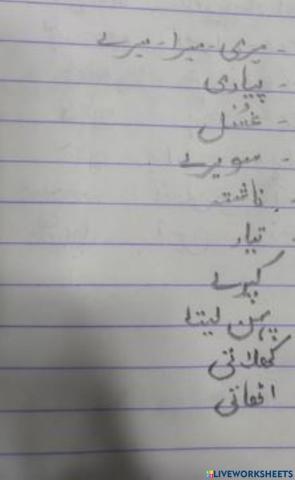 - میری - میرا - میرے
- پیاری
- غسل
- سویرے
- ناشتہ
- تیار
کپڑے
پہن لیتے
کھلاتی
اٹھاتی
LIVEWORKSHEETS